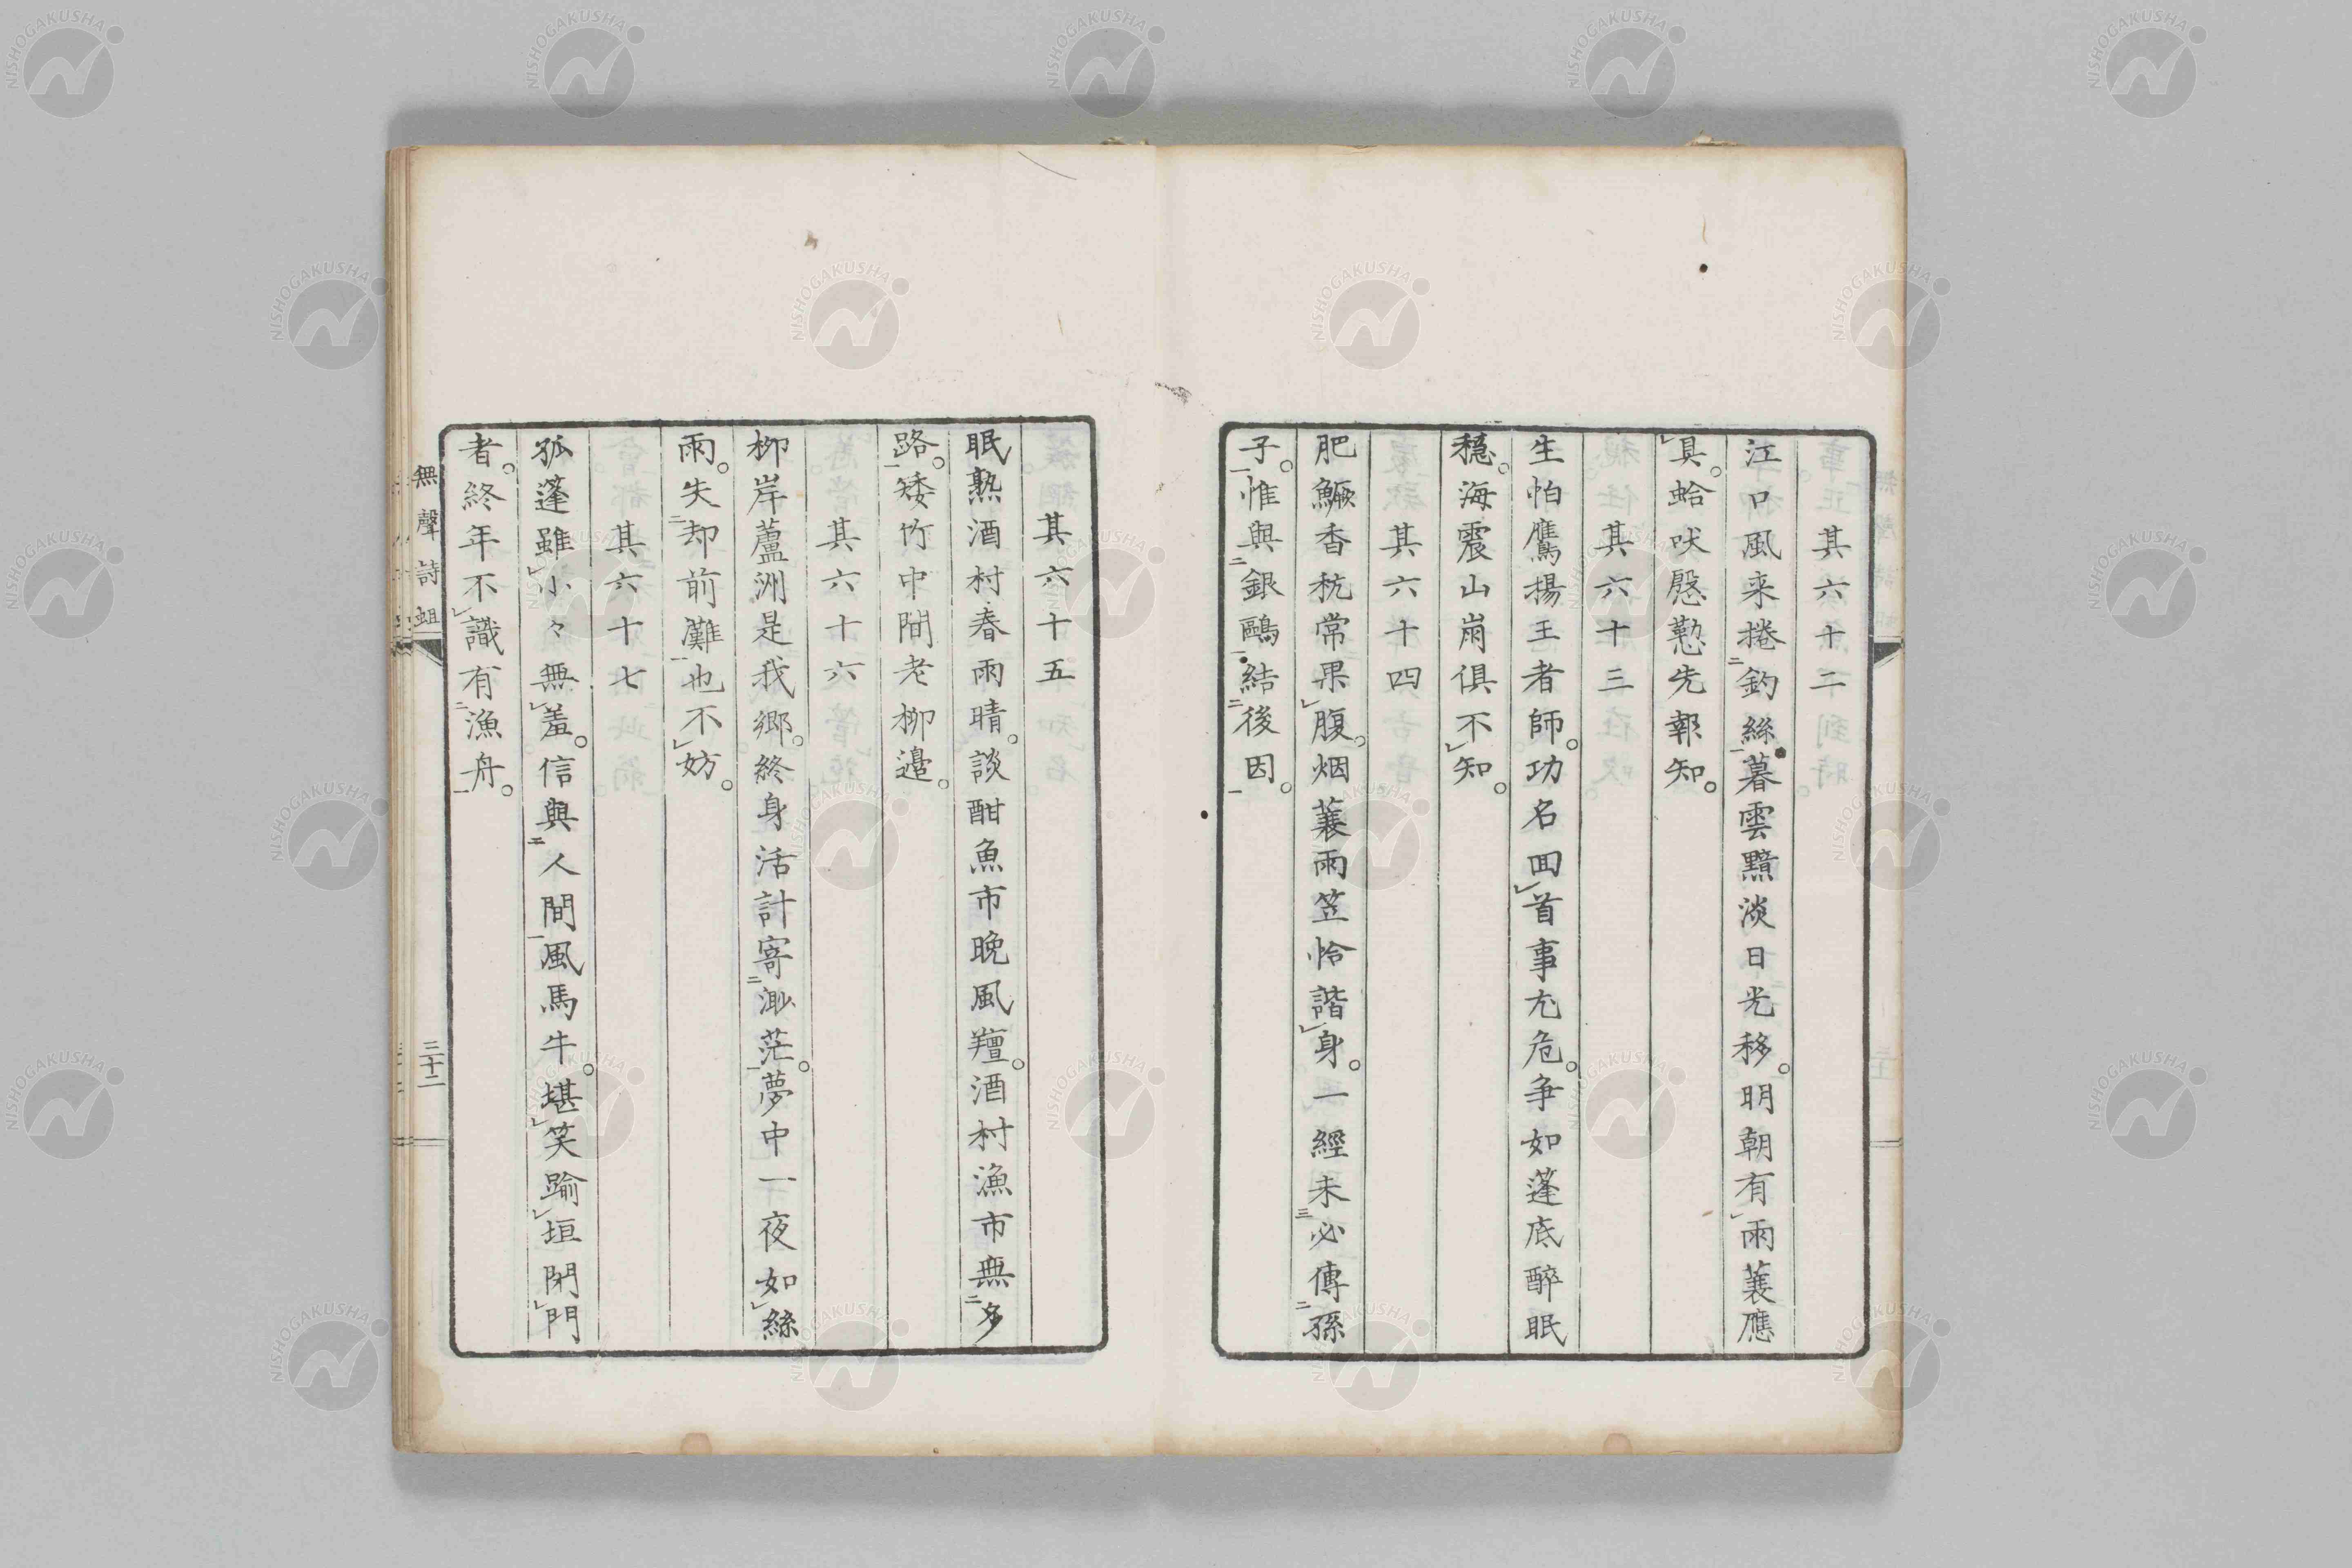 其六十二
江口風来捲釣絲暮雲黯淡日光移。明朝有雨蓑應
具。蛤吠慇懃先報知。
其六十三
生怕鷹揚王者師。功名回首事尤危。争如蓬底醉眠
穏。海震山崩俱不知。
其六十四
肥鱖香秔常果腹。烟蓑雨笠恰諧身。一經未必傳孫
子。惟與銀鷗結後因。
其六十五
眠熟酒村春雨晴。談酣魚市晩風羶。酒村漁市無多
路。矮竹中間老柳邉。
其六十六
柳岸蘆洲是我郷。終身活計寄渺茫。夢中一夜如絲
雨。失却前灘也不妨。
其六十七
孤蓬雖小々無羞。信與人間風馬牛。堪笑踰垣閉門
者。終年不識有漁舟。
無聲詩蛆
三十二